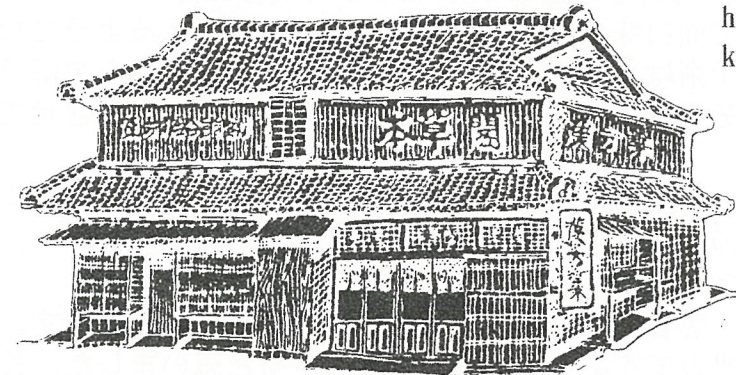 h
k
本草閣
漢方薬
漢方薬